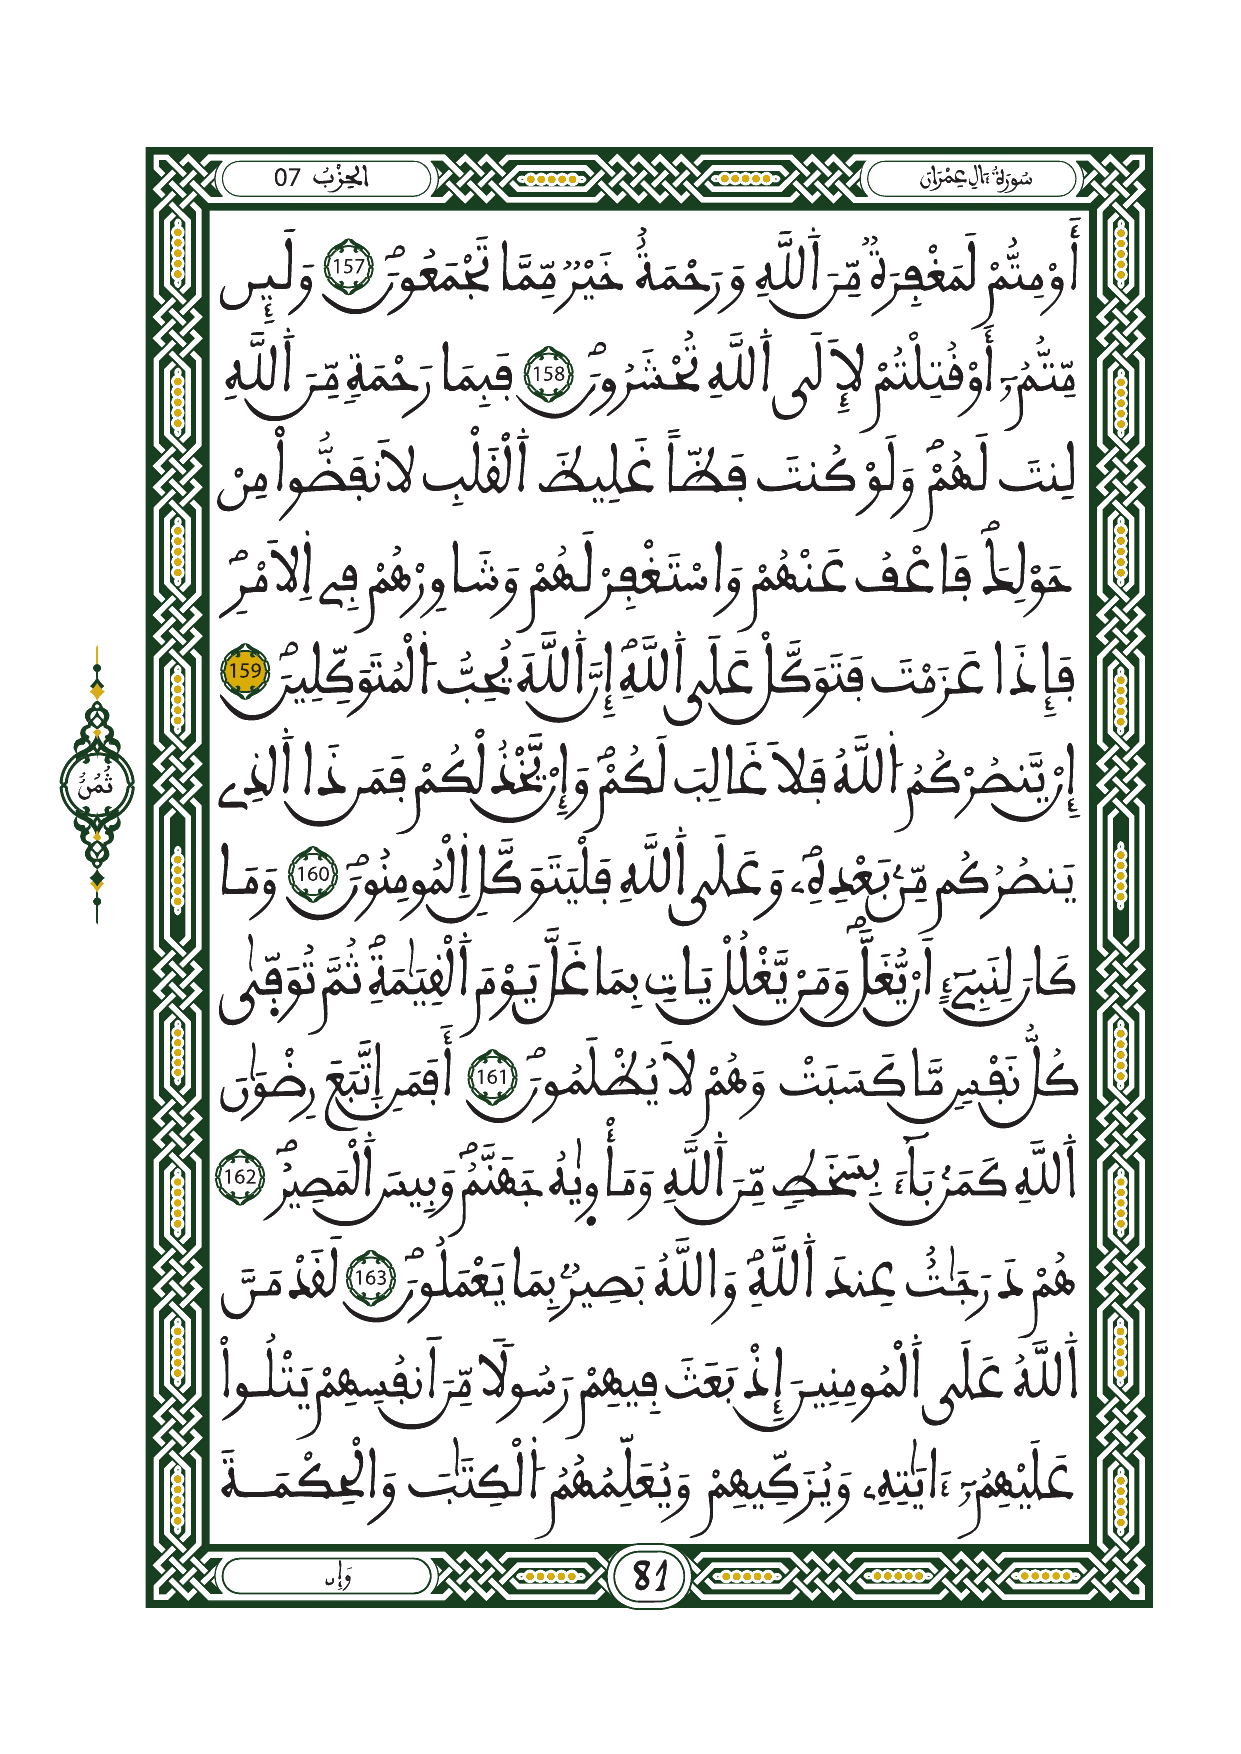 سُورَةُ ءَالِ عِمْرَان
الحِزْبُ 07
أَوْ مِتُّمْ لَمَغْفِرَةٌ مِّنَ اَللَّهِ وَرَحْمَةٌ خَيْرٌ مِّمَّا تَجْمَعُونَ 157 وَلَئِن
مِّتُّمُۥٓ أَوْ قُتِلْتُمْ لَإِلَى اَللَّهِ تُحْشَرُونَ 158 فَبِمَا رَحْمَةٍ مِّنَ اَللَّهِ
لِنتَ لَهُمْ وَلَوْ كُنتَ فَظّاً غَلِيظَ اَلْقَلْبِ لَانفَضُّواْ مِنْ
حَوْلِكَ فَاعْفُ عَنْهُمْ وَاسْتَغْفِرْ لَهُمْ وَشَاوِرْهُمْ فِے اِلَامْرِ
فَإِذَا عَزَمْتَ فَتَوَكَّلْ عَلَى اَللَّهِ إِنَّ اَللَّهَ يُحِبُّ اُلْمُتَوَكِّلِينَ 159
ثُمُنُ
إِنْ يَّنصُرْكُمُ اُللَّهُ فَلَا غَالِبَ لَكُمْ وَإِنْ يَّخْذُلْكُمْ فَمَن ذَا اَلذِے
يَنصُرُكُم مِّنۢ بَعْدِهِۦ وَعَلَى اَللَّهِ فَلْيَتَوَكَّلِ اِلْمُومِنُونَ 160 وَمَا
كَانَ لِنَبِيٓءٍ اَنْ يُّغَلَّ وَمَنْ يَّغْلُلْ يَاتِ بِمَا غَلَّ يَوْمَ اَلْقِيَٰمَةِ ثُمَّ تُوَفّ۪ىٰ
كُلُّ نَفْسٍ مَّا كَسَبَتْ وَهُمْ لَا يُظْلَمُونَ 161 أَفَمَنِ اِتَّبَعَ رِضْوَٰنَ
اَللَّهِ كَمَنۢ بَآءَ بِسَخَطٍ مِّنَ اَللَّهِ وَمَأْو۪يٰهُ جَهَنَّمُ وَبِيسَ اَلْمَصِيرُ 162
هُمْ دَرَجَٰتٌ عِندَ اَللَّهِ وَاللَّهُ بَصِيرٌۢ بِمَا يَعْمَلُونَ 163 لَقَدْ مَنَّ
اَللَّهُ عَلَى اَلْمُومِنِينَ إِذْ بَعَثَ فِيهِمْ رَسُولًا مِّنَ اَنفُسِهِمْ يَتْلُواْ
عَلَيْهِمُۥٓ ءَايَٰتِهِۦ وَيُزَكِّيهِمْ وَيُعَلِّمُهُمُ اُلْكِتَٰبَ وَالْحِكْمَةَ
81
وَإِن